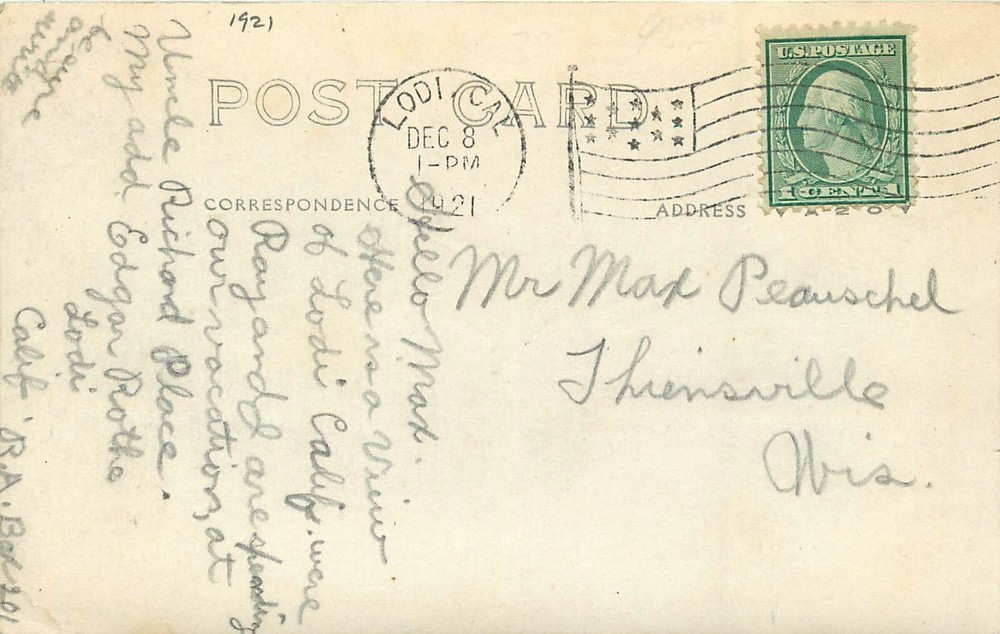 1921
POST CARD
LODI CAL
DEC 8
1-PM
1921
U.S. POSTAGE
1 CENT 1
CORRESPONDENCE
ADDRESS
Mr Max Peauschel
Thiensville
Wis.
Hello Max.
Here is a View
of Lodi Calif. were
Ray and I are spending
our vacation, at
Umcle Richard Place.
My add. Edgar Rothe
Lodi
Calif R.A. Box 201